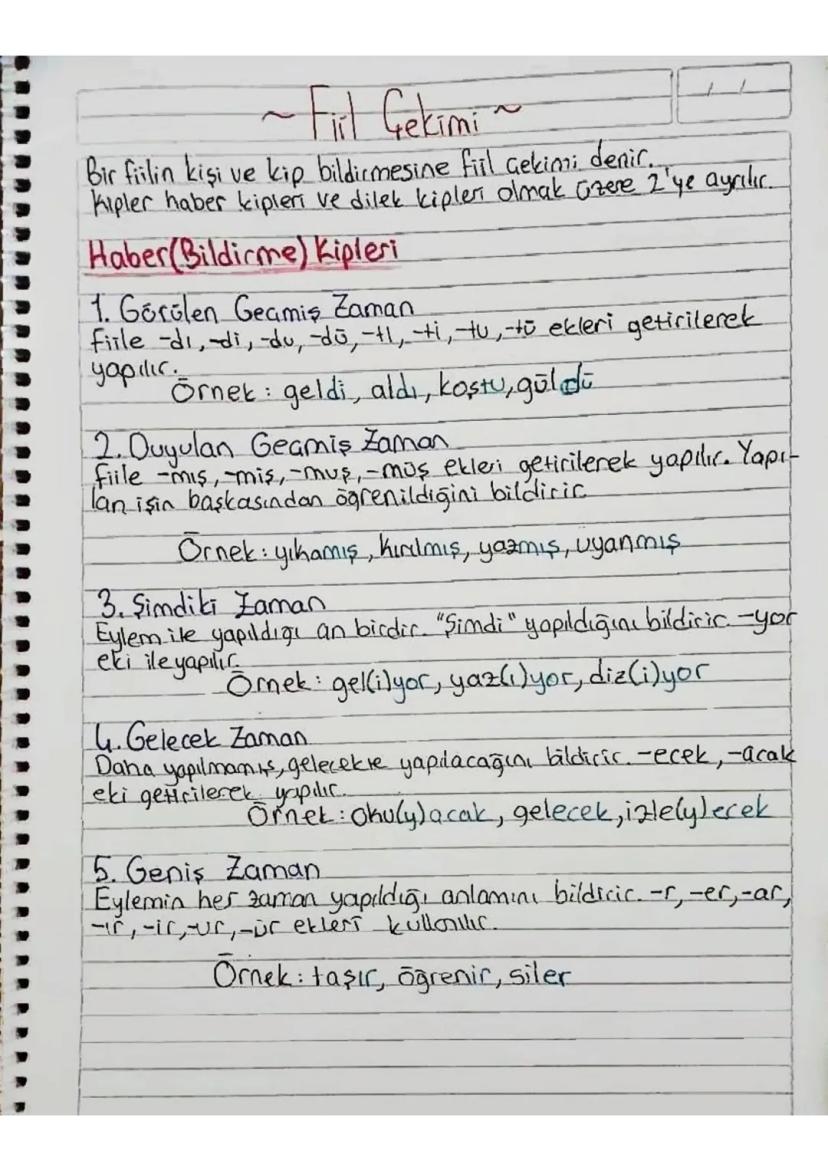 ~ Fiil Çekimi ~
Bir fiilin kişi ve kip bildirmesine fiil çekimi denir.
Kipler haber kipleri ve dilek kipleri olmak üzere 2'ye ayrılır.
Haber(Bildirme) Kipleri
1. Görülen Geçmiş Zaman
Fiile -dı, -di, -du, -dü, -tı, -ti, -tu, -tü ekleri getirilerek
yapılır.
Örnek : geldi, aldı, koştu, güldü
2. Duyulan Geçmiş Zaman
Fiile -mış, -miş, -muş, -müş ekleri getirilerek yapılır. Yapı-
lan işin başkasından öğrenildiğini bildirir
Örnek : yıkamış, kırılmış, yazmış, uyanmış
3. Şimdiki Zaman
Eylem ile yapıldığı an birdir. "Şimdi" yapıldığını bildirir. -yor
eki ile yapılır.
Örnek : gel(i)yor, yaz(ı)yor, diz(i)yor
4. Gelecek Zaman
Daha yapılmamış, gelecekte yapılacağını bildirir. -ecek, -acak
eki getirilerek yapılır.
Örnek : oku(y)acak, gelecek, izle(y)ecek
5. Geniş Zaman
Eylemin her zaman yapıldığı anlamını bildirir. -r, -er, -ar,
-ır, -ir, -ur, -ür ekleri kullanılır.
Örnek : taşır, öğrenir, siler